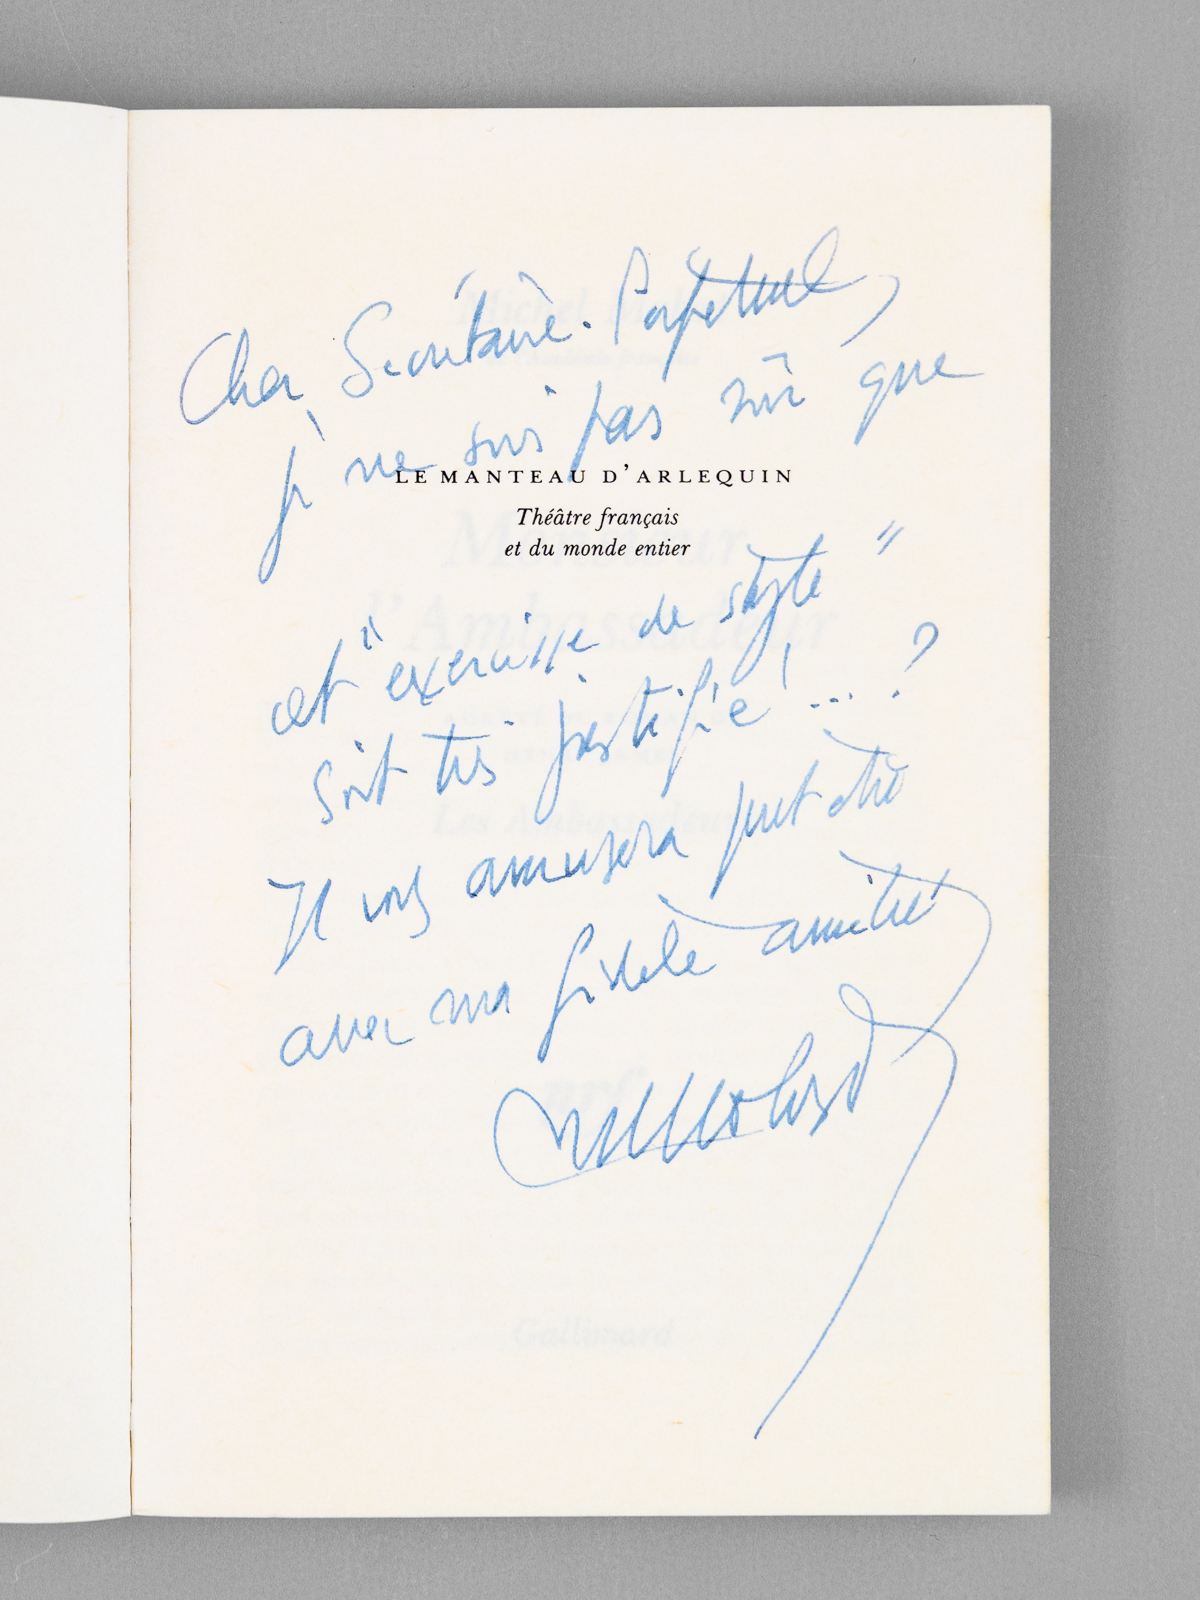 Cher Secrétaire Perpétuel,
je ne suis pas sûr que
LE MANTEAU D'ARLEQUIN
Théâtre français
et du monde entier
cet "exercice de style"
soit très justifié ... ?
Il vous amusera peut être
avec ma fidèle amitié
Michel Mohrt
Monsieur
l'Ambassadeur
Les Ambassadeurs
nrf
Gallimard